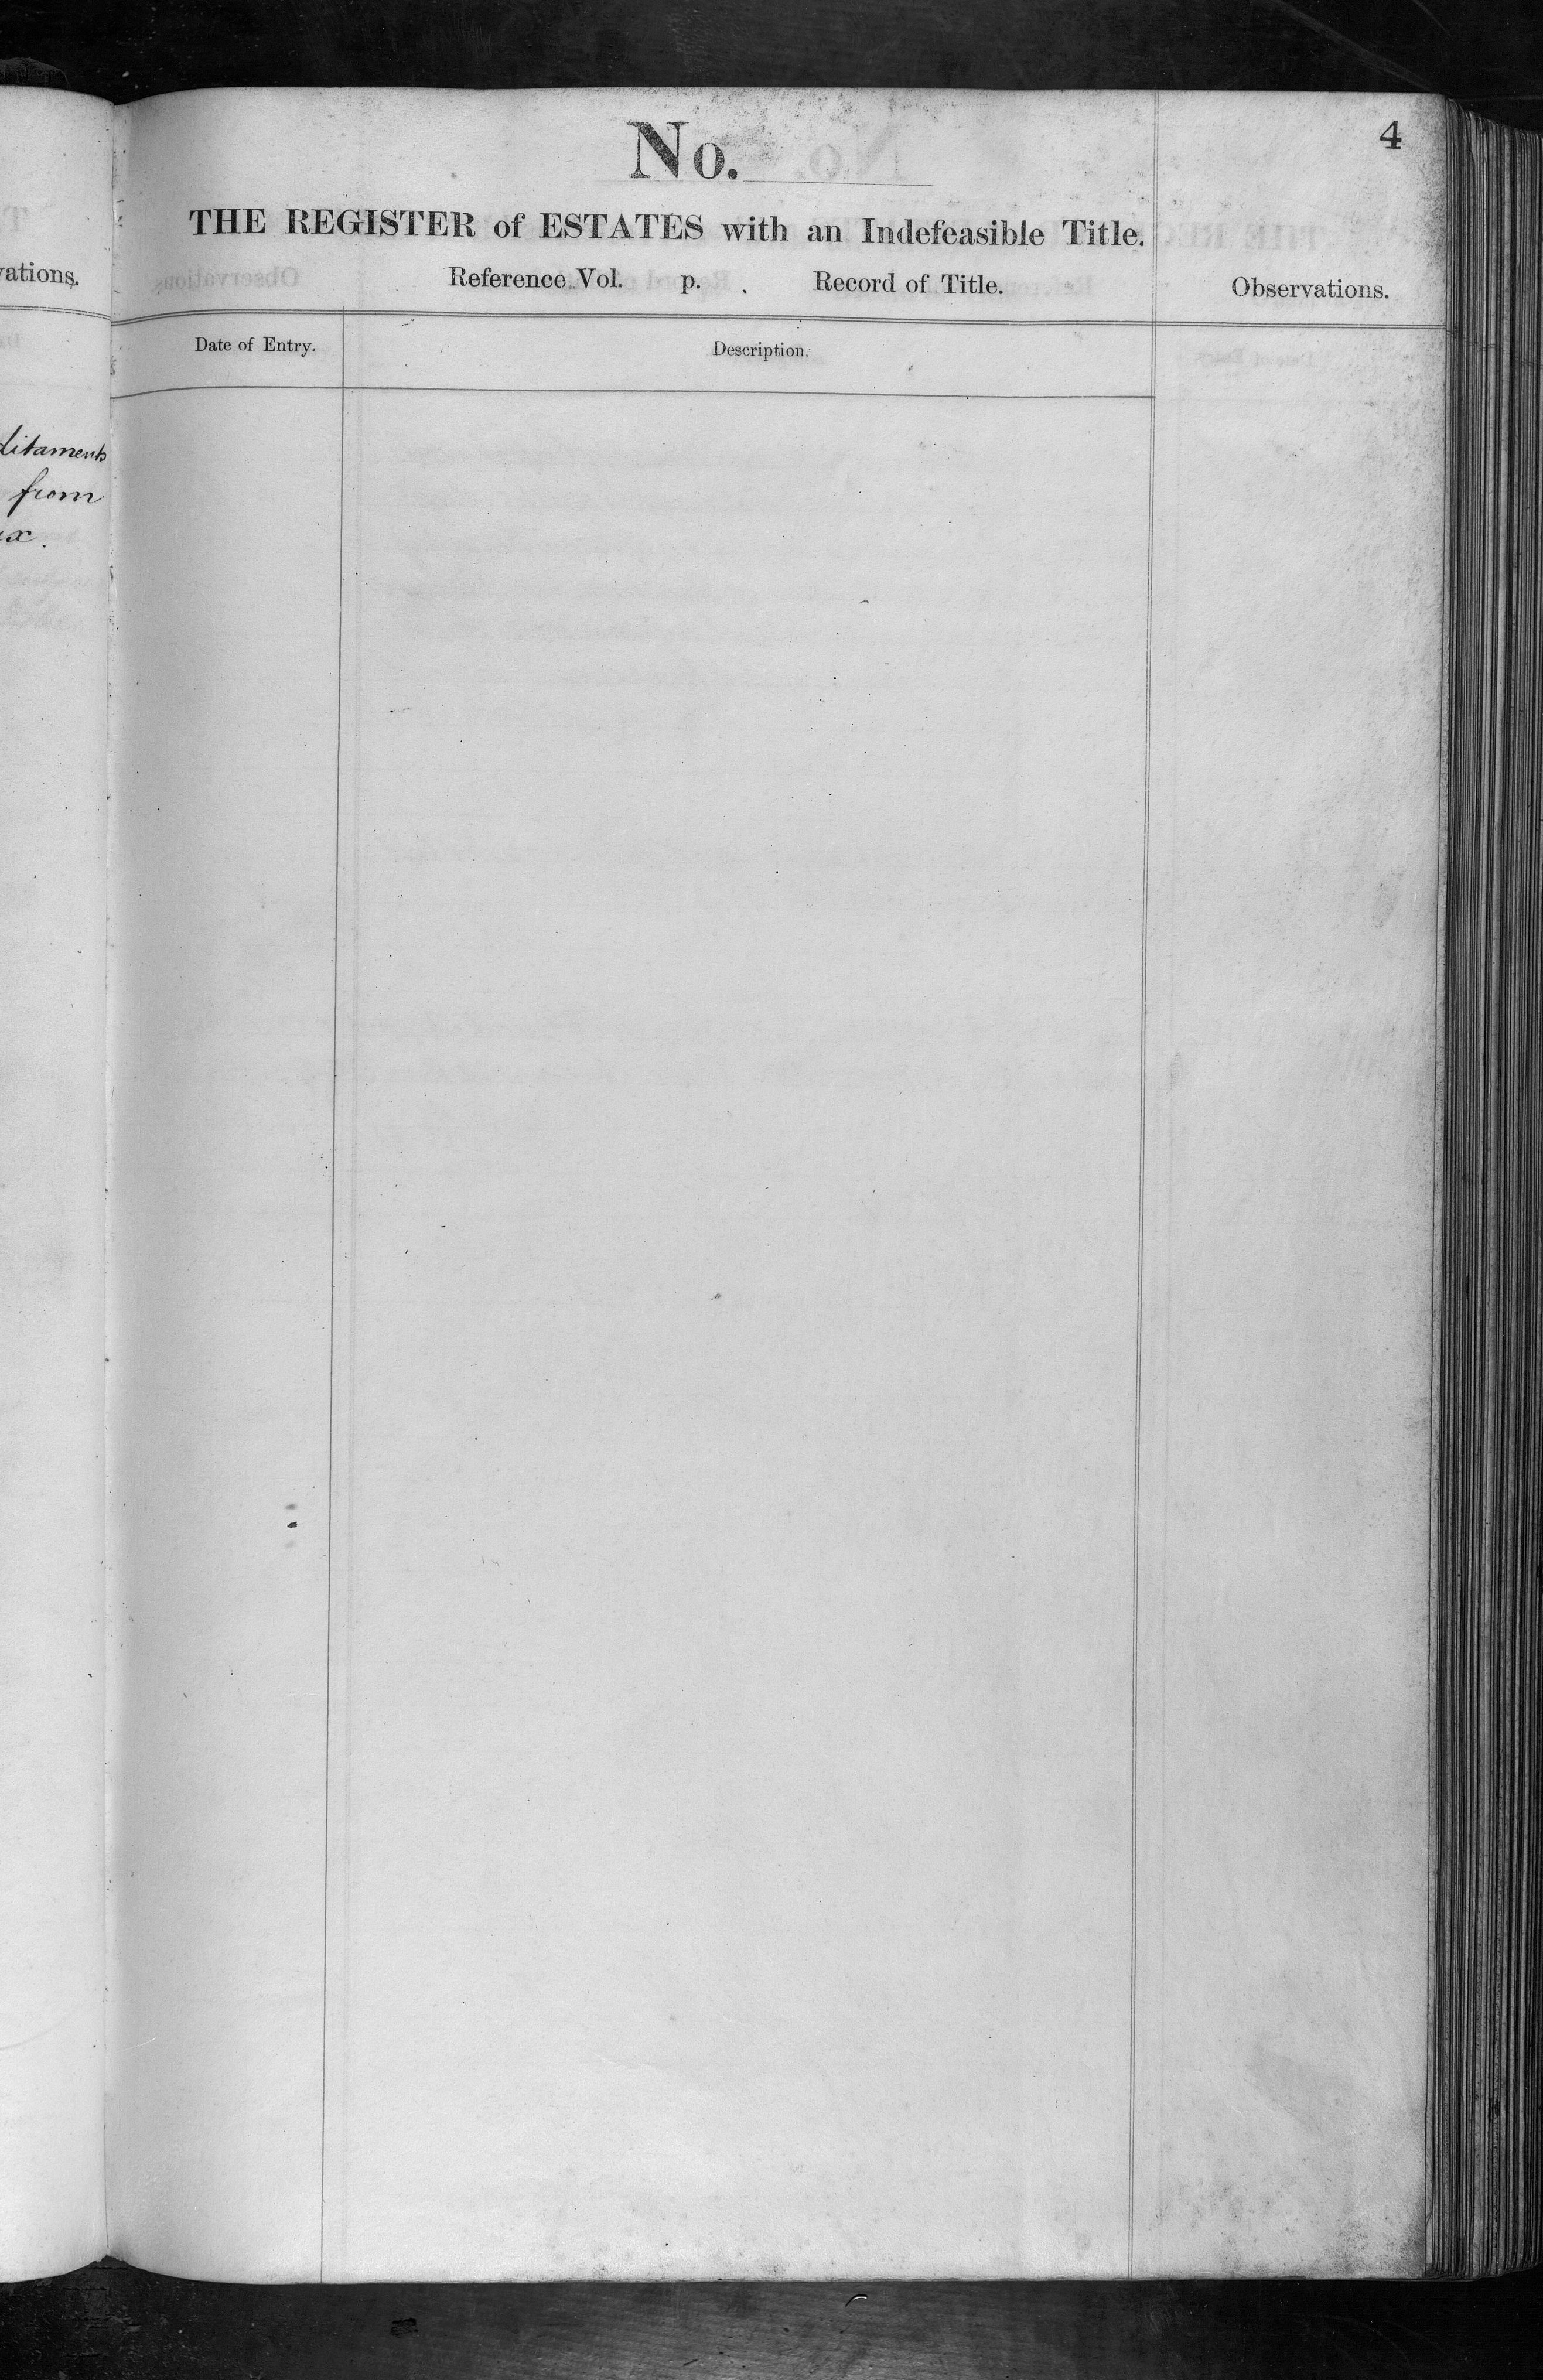 4
No.
THE REGISTER of ESTATES with an Indefeasible Title.
Reference Vol. p. . Record of Title.
Observations.
Date of Entry.
Description.
vations.
ditaments
from